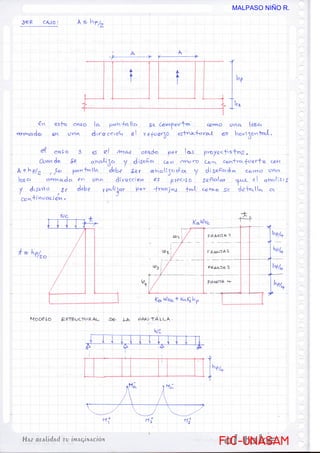 MALPASO NIÑO R.
3ER CASO: A ≤ hp/2
A A
hp
hz
En este caso la pantalla se comporta como una losa
armada en una dirección el refuerzo estructural es horizontal.
el caso 3 es el más usado por los proyectistas.
Cuando se analiza y diseña un muro con contrafuerte con
A = hp/2, la pantalla debe ser analizada y diseñada como una
losa armada en una dirección es preciso señalar que el análisis
y diseño se debe realizar por franjas tal como se detalla a
continuación.
S/C t
t
W1 FRANJA 1 hp/4
W2 FRANJA 2 hp/4
W3 FRANJA 3 hp/4
W4 FRANJA 4 hp/4
MODELO ESTRUCTURAL DE LA PANTALLA
hp/4
Haz realidad tu imaginación
FIC-UNASAM